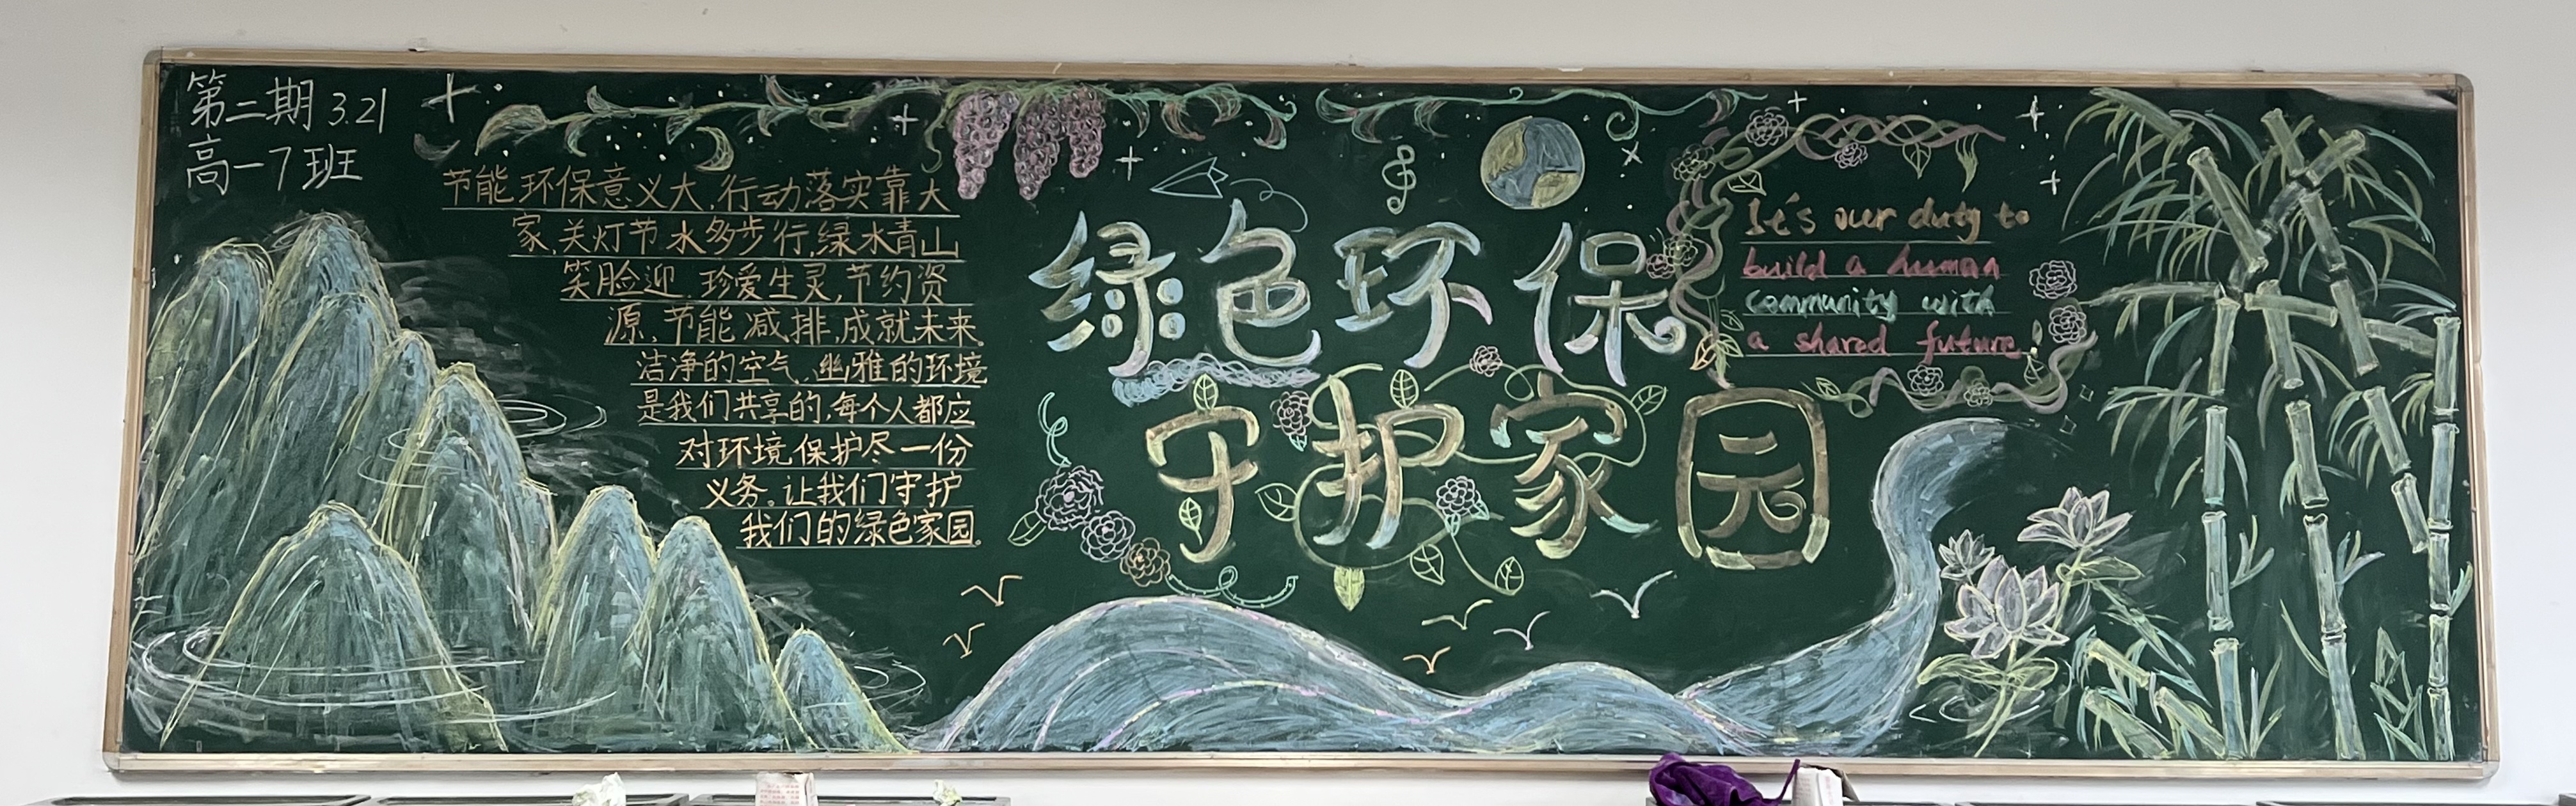 第二期 3.21
高一7班
节能环保意义大,行动落实靠大
家,关灯节水多步行,绿水青山
笑脸迎,珍爱生灵,节约资
源,节能减排,成就未来。
洁净的空气、幽雅的环境
是我们共享的,每个人都应
对环境保护尽一份
义务。让我们守护
我们的绿色家园。
绿色环保
守护家园
It's our duty to
build a human
community with
a shared future.